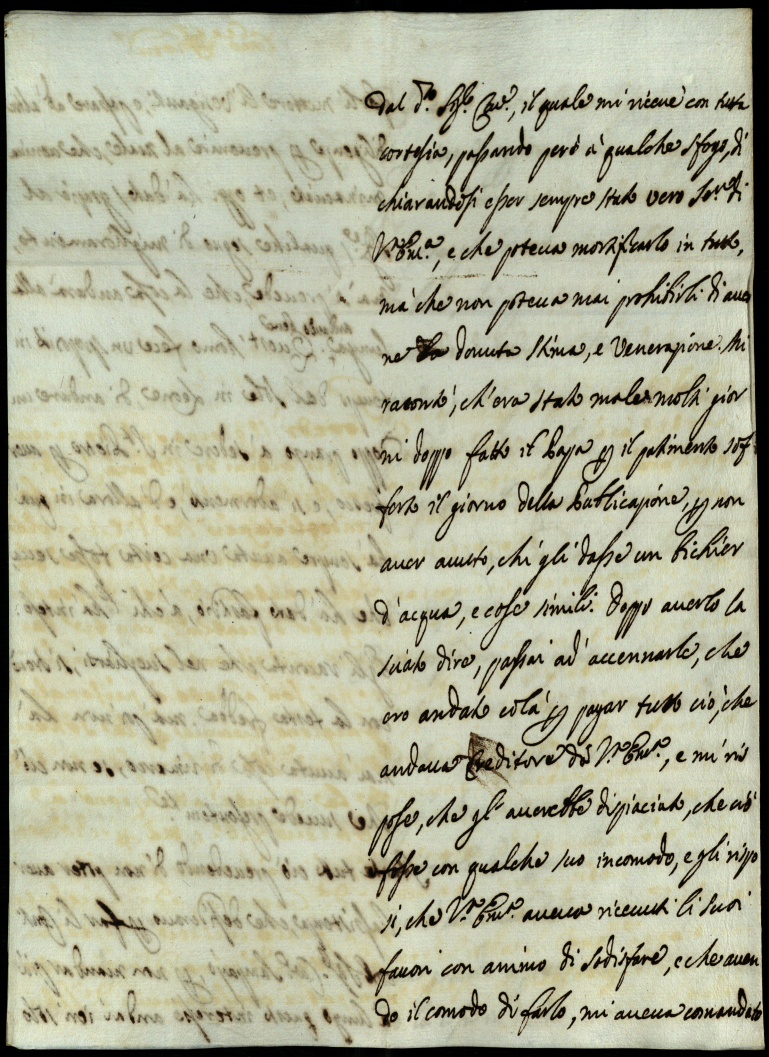 dal d.º Sig.r Cav.e, il quale mi riceuè con tutta
cortesia, passando però à qualche sfogo, di
chiarandosi esser sempre stato vero Ser.re di
V.ª Em.ª, e che poteua mortificarlo in tutto,
mà che non poteua mai prohibirli di auer
ne la douuta stima, e Venerazione. Mi
racontò, ch'era stato male molti gior
ni doppo fatto il Papa p il patimento sof
ferto il giorno della Publicazione, p non
auer auuto, chi gli dasse un bichier
d'acqua, e cose simili. Doppo auerlo la
sciato dire, passai ad accennarle, che
ero andato colà p pagar tutto ciò, che
andaua Creditore di V.ª Em.ª, e mi ris
pose, che gl'auerebbe dispiaciuto, che ciò
fosse con qualche suo incomodo, e gli rispo
si, che V.ª Em.ª aueua riceuuti li suoi
fauori con animo di sodisfare, e che auen
do il comodo di farlo, mi aueua comandato